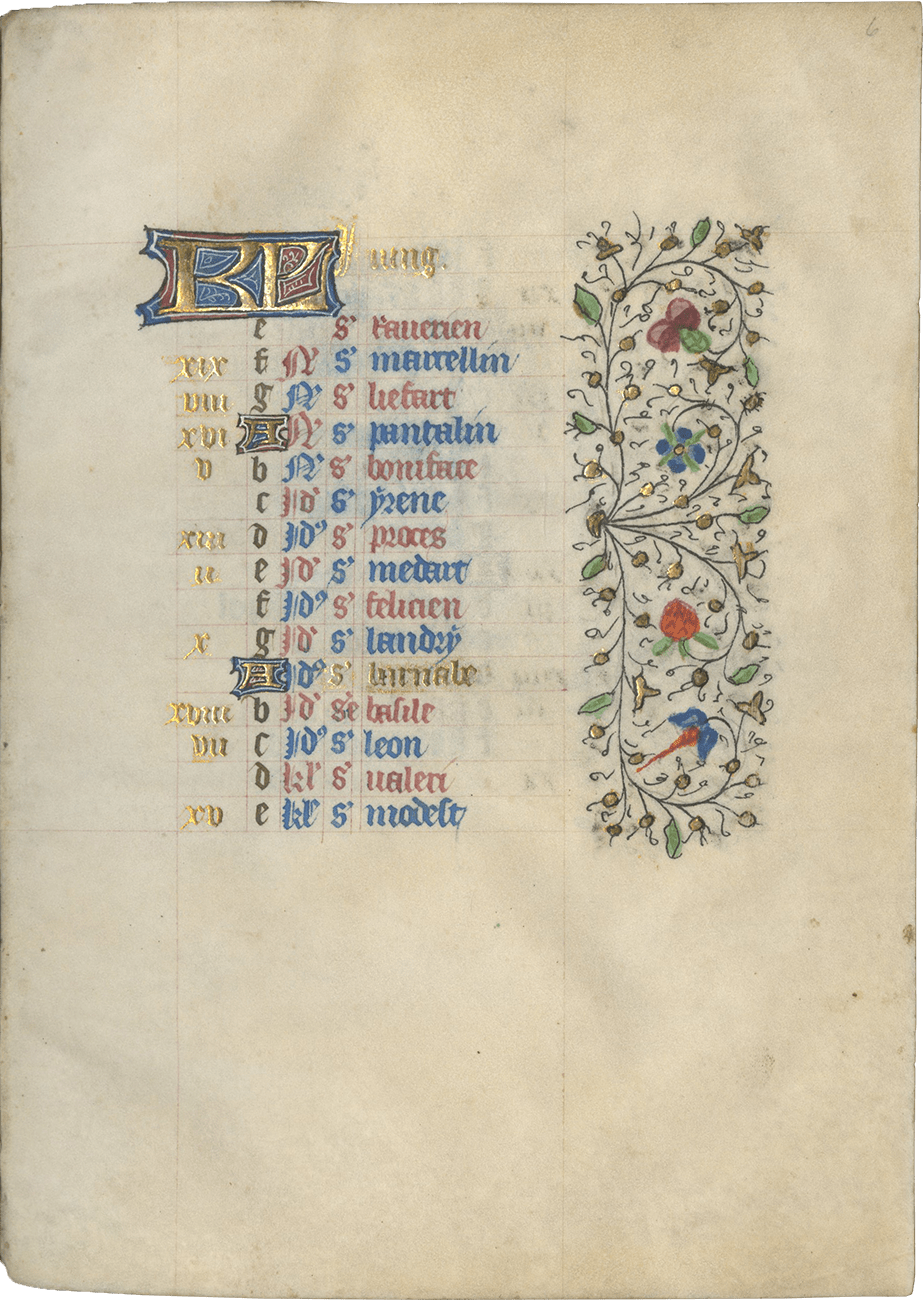 6
KL Juing.
e s' raverien
xix f N s' marcellin
viii g N s' liefart
xvi A N s' pantalin
v b N s' boniface
c Id' s' yrene
xiii d Id' s' proces
ii e Id' s' medart
f Id' s' felicien
x g Id' s' landry
A Id' s' barnabe
xviii b Id' sē basile
vii c Id' s' leon
d kl' s' valeri
xv e kl' s' modest